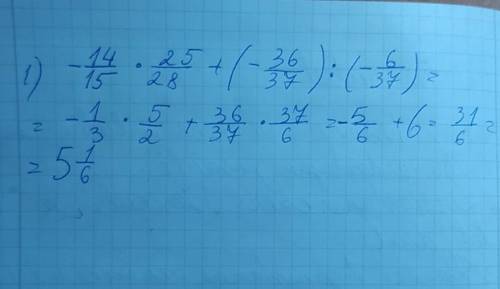 1) -14/15 · 25/28 + (-36/37) : (-6/37) =
= -1/3 · 5/2 + 36/37 · 37/6 = -5/6 + 6 = 31/6 =
= 5 1/6